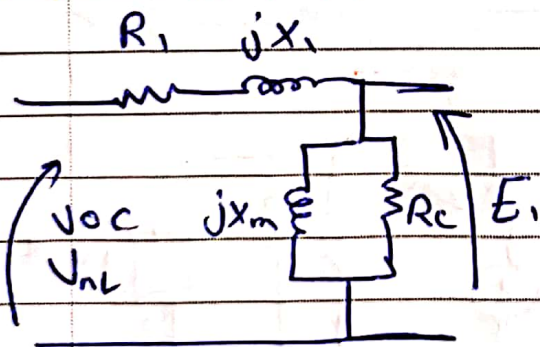 R₁ jX₁
Voc jXm Rc E₁
VnL